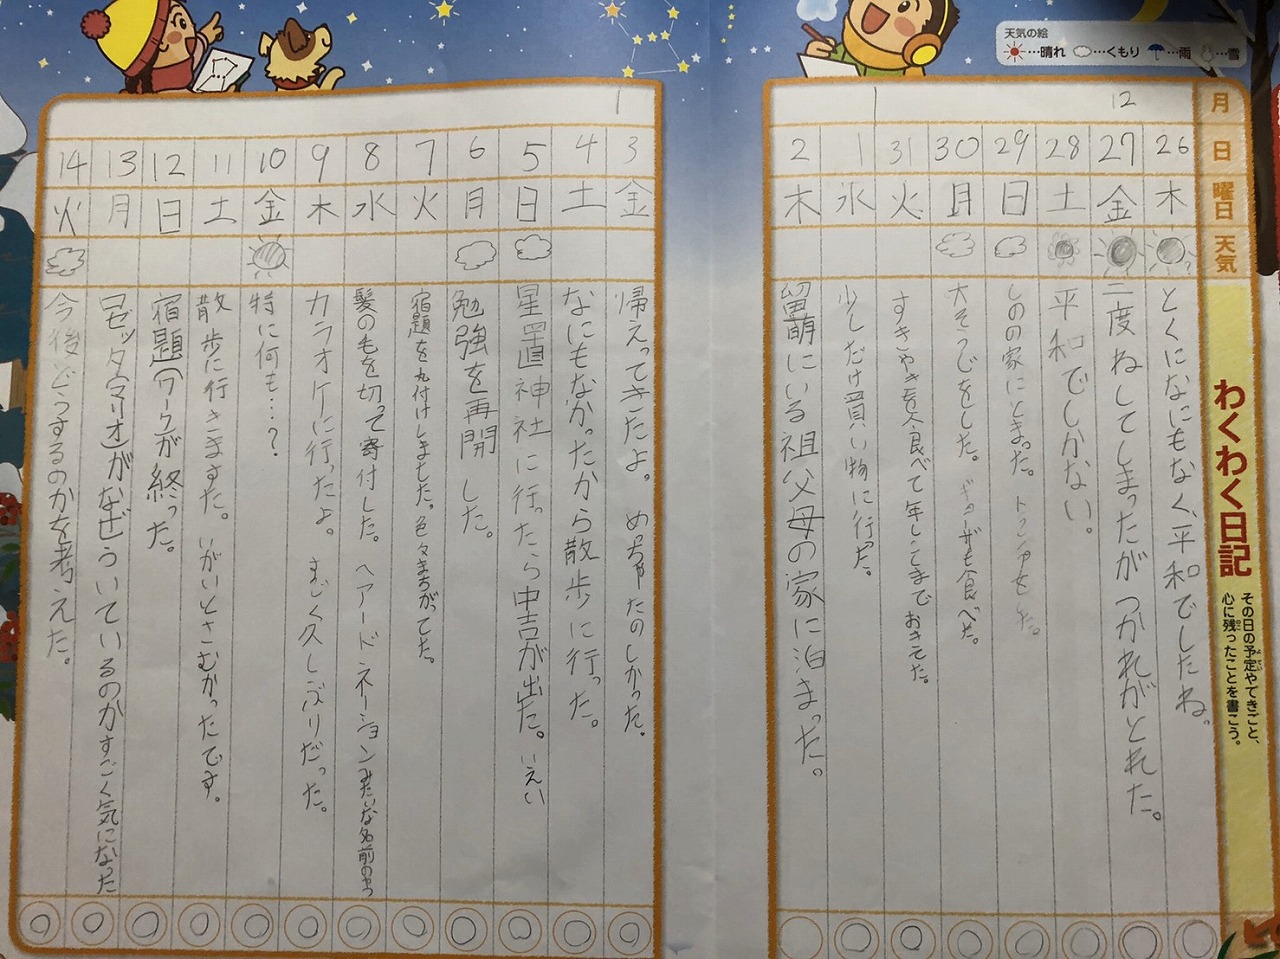 天気の絵
…晴れ …くもり …雨 …雪
わくわく日記
その日の予定やできごと、
心に残ったことを書こう。
月
日
曜日
天気
12
26
木
とくになにもなく、平和でしたね。
27
金
二度ねしてしまったがつかれがとれた。
28
土
平和でしかない。
29
日
しのの家にとまった。
30
月
大そうじをした。ギョーザも食べた。
31
火
すきやきを食べて年こしまでおきてた。
1
1
水
少しだけ買い物に行った。
2
木
留萌にいる祖父母の家に泊まった。
1
3
金
帰えってきたよ。めっちゃたのしかった。
4
土
なにもなかったから散歩に行った。
5
日
星置神社に行ったら中吉が出た。いえい
6
月
勉強を再開した。
7
火
宿題を丸付けしました。色々まちがってた。
8
水
髪の毛を切って寄付した。ヘアードネーションみたいな名前のやつ
9
木
カラオケに行ったよ。すごく久しぶりだった。
10
金
特に何も…?
11
土
散歩に行きますた。いがいとさむかったです。
12
日
宿題(ワークが終った。
13
月
ロゼッタ(マリオ)がなぜういているのかすごく気になった
14
火
今後どうするのかを考えた。